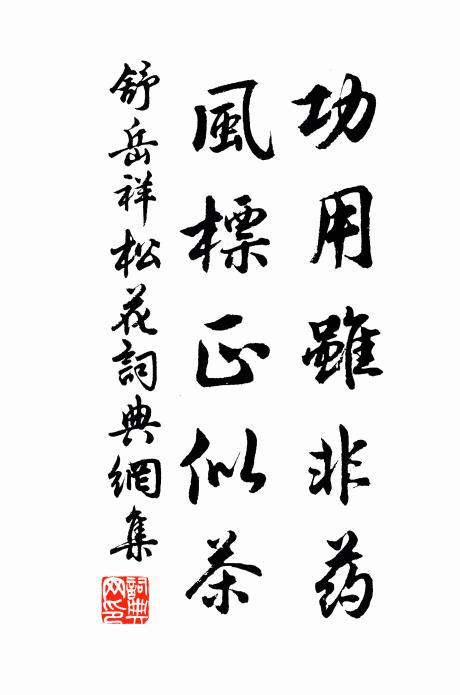 功用雖非药
風標正似茶
舒岳祥松花詞典網集
詞典網印